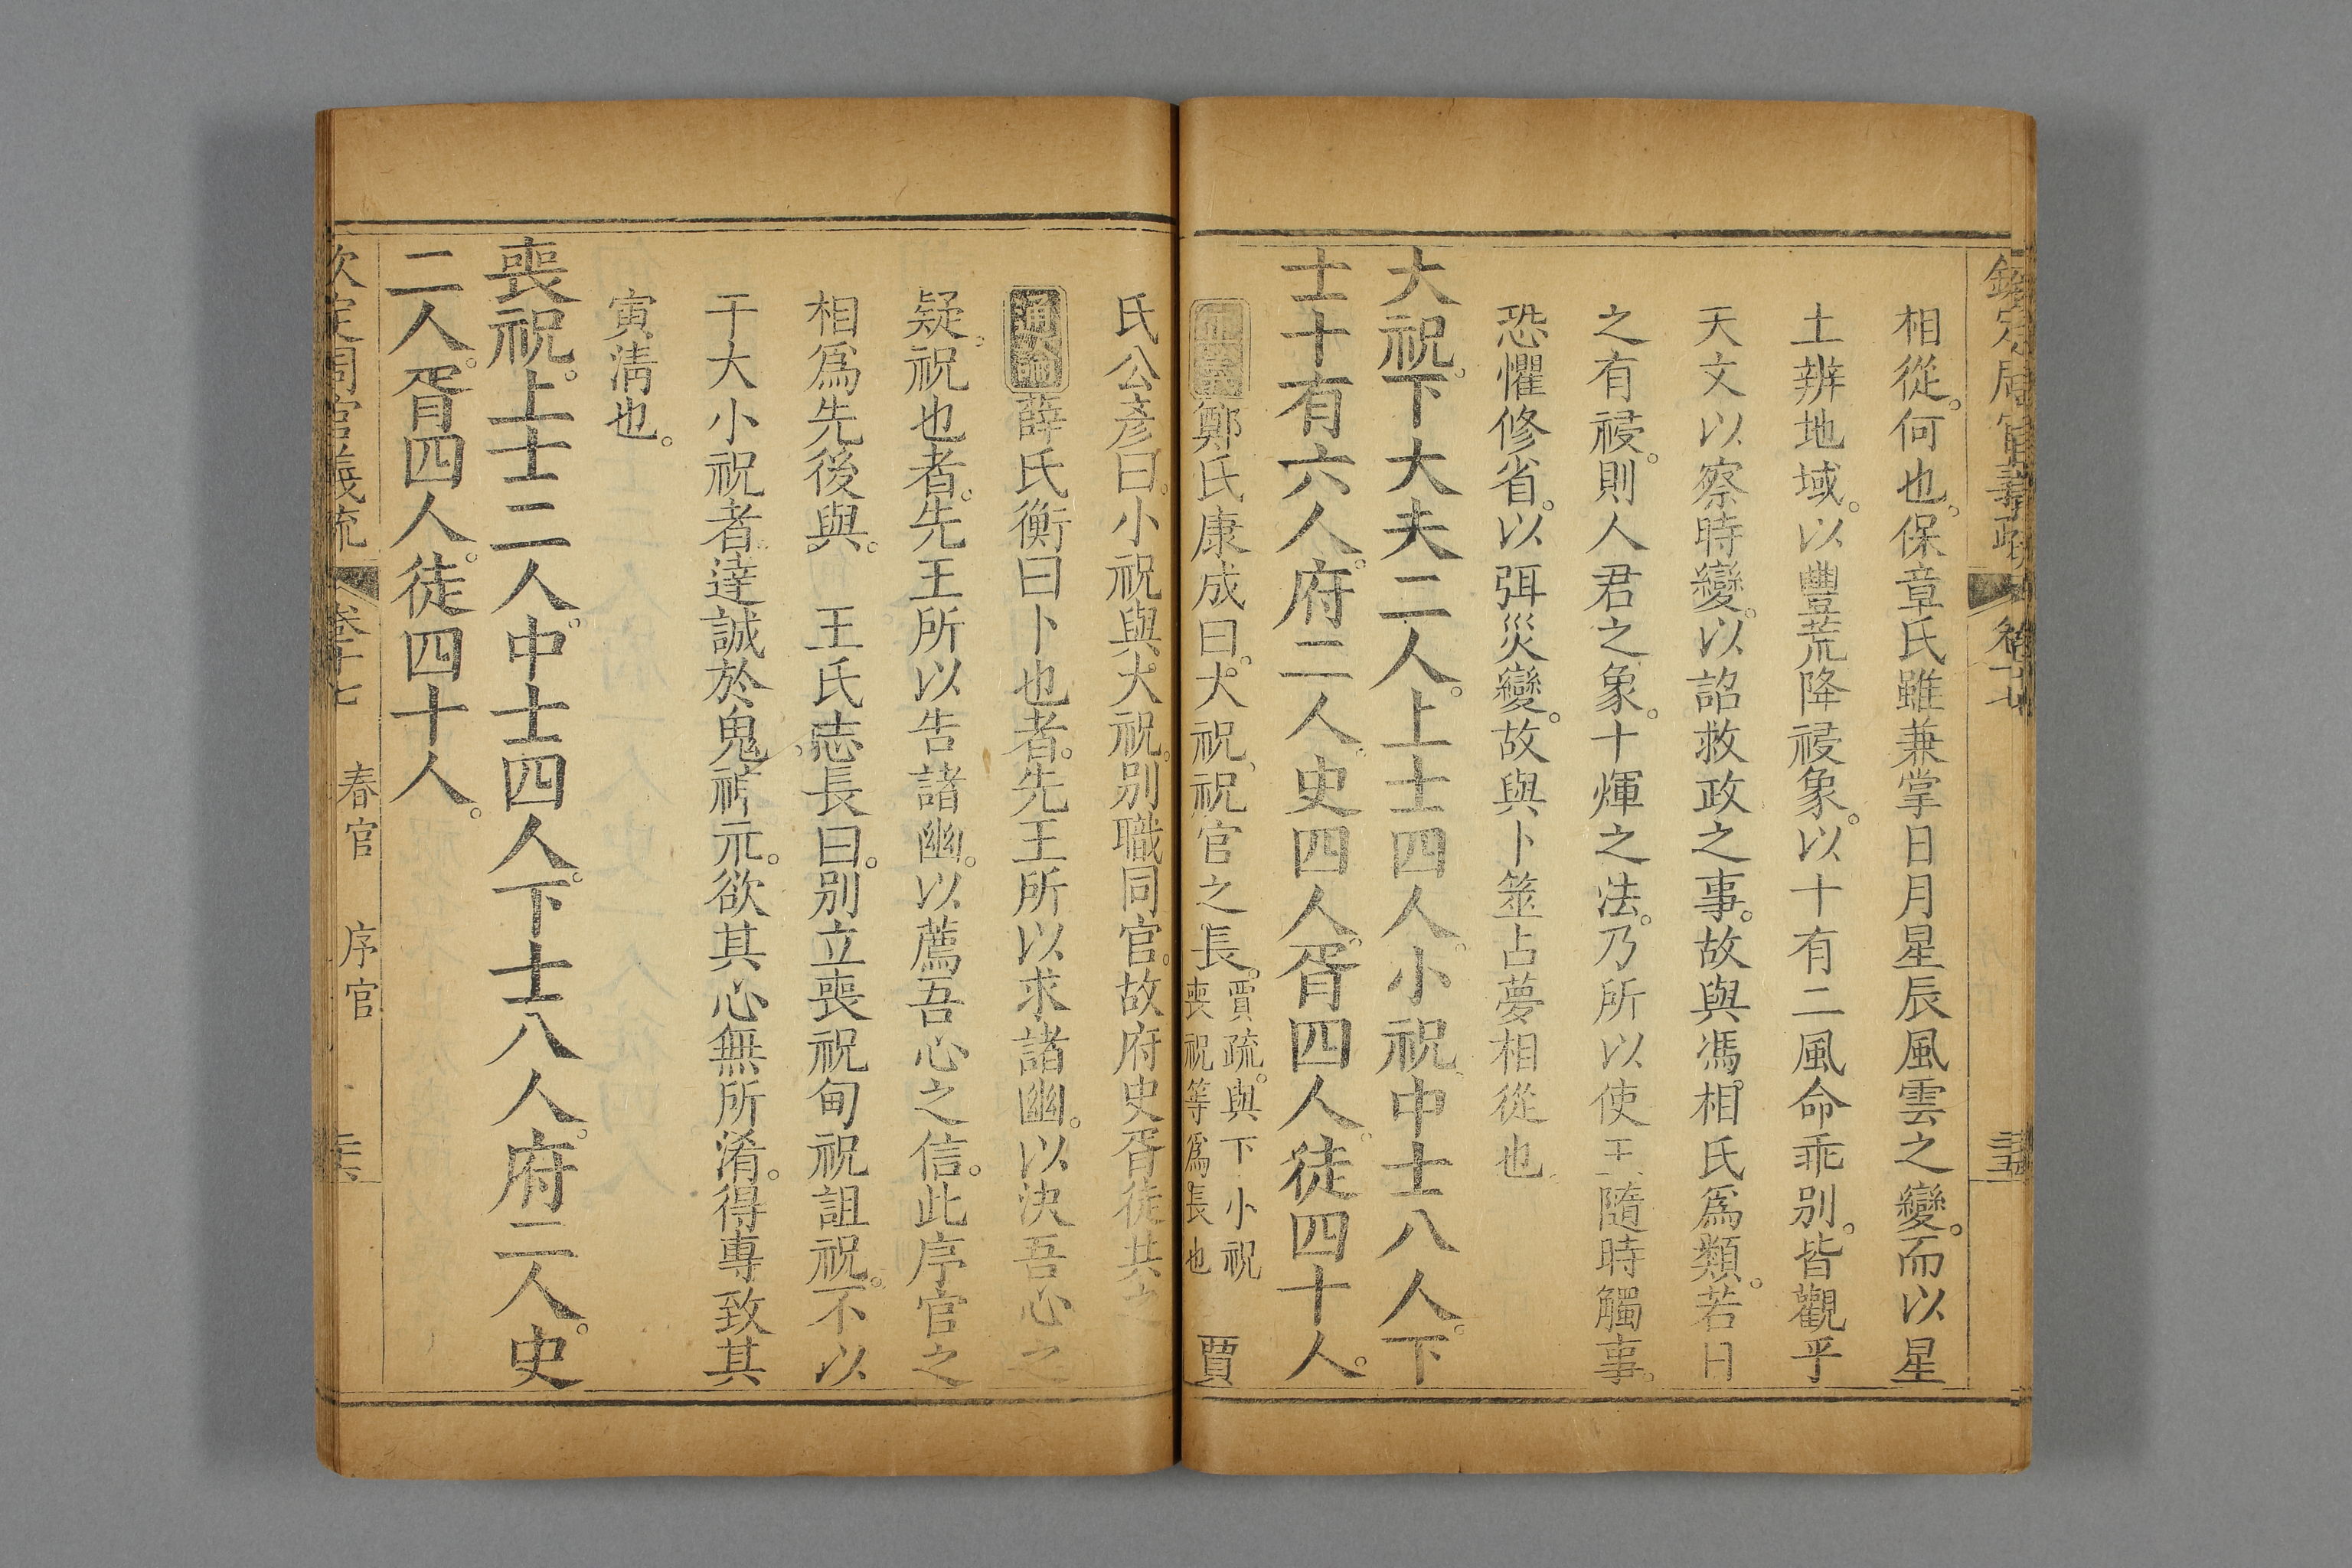 欽定周官義疏 卷十七
相從何也。保章氏雖兼掌日月星辰風雲之變。而以星
土辨地域。以豐荒降祲象。以十有二風命乖別。皆觀乎
天文以察時變。以詔救政之事。故與馮相氏爲類。若日
之有祲。則人君之象。十煇之法。乃所以使王隨時觸事。
恐懼修省。以弭災變。故與卜筮占夢相從也
大祝。下大夫二人。上士四人。小祝。中士八人。下
士十有六人。府二人。史四人。胥四人。徒四十人。
正義 鄭氏康成曰。大祝。祝官之長。賈疏。與下小祝喪祝等爲長也 賈
氏公彥曰。小祝與大祝。別職同官。故府史胥徒共之
通論 薛氏衡曰卜也者。先王所以求諸幽。以決吾心之
疑。祝也者。先王所以告諸幽。以薦吾心之信。此序官之
相爲先後與。 王氏志長曰。別立喪祝甸祝詛祝。不以
干大小祝者。達誠於鬼神示。欲其心無所淆。得專致其
寅清也。
喪祝。上士二人。中士四人。下士八人。府二人。史
二人。胥四人。徒四十人。
欽定周官義疏 卷十七 春官 序官